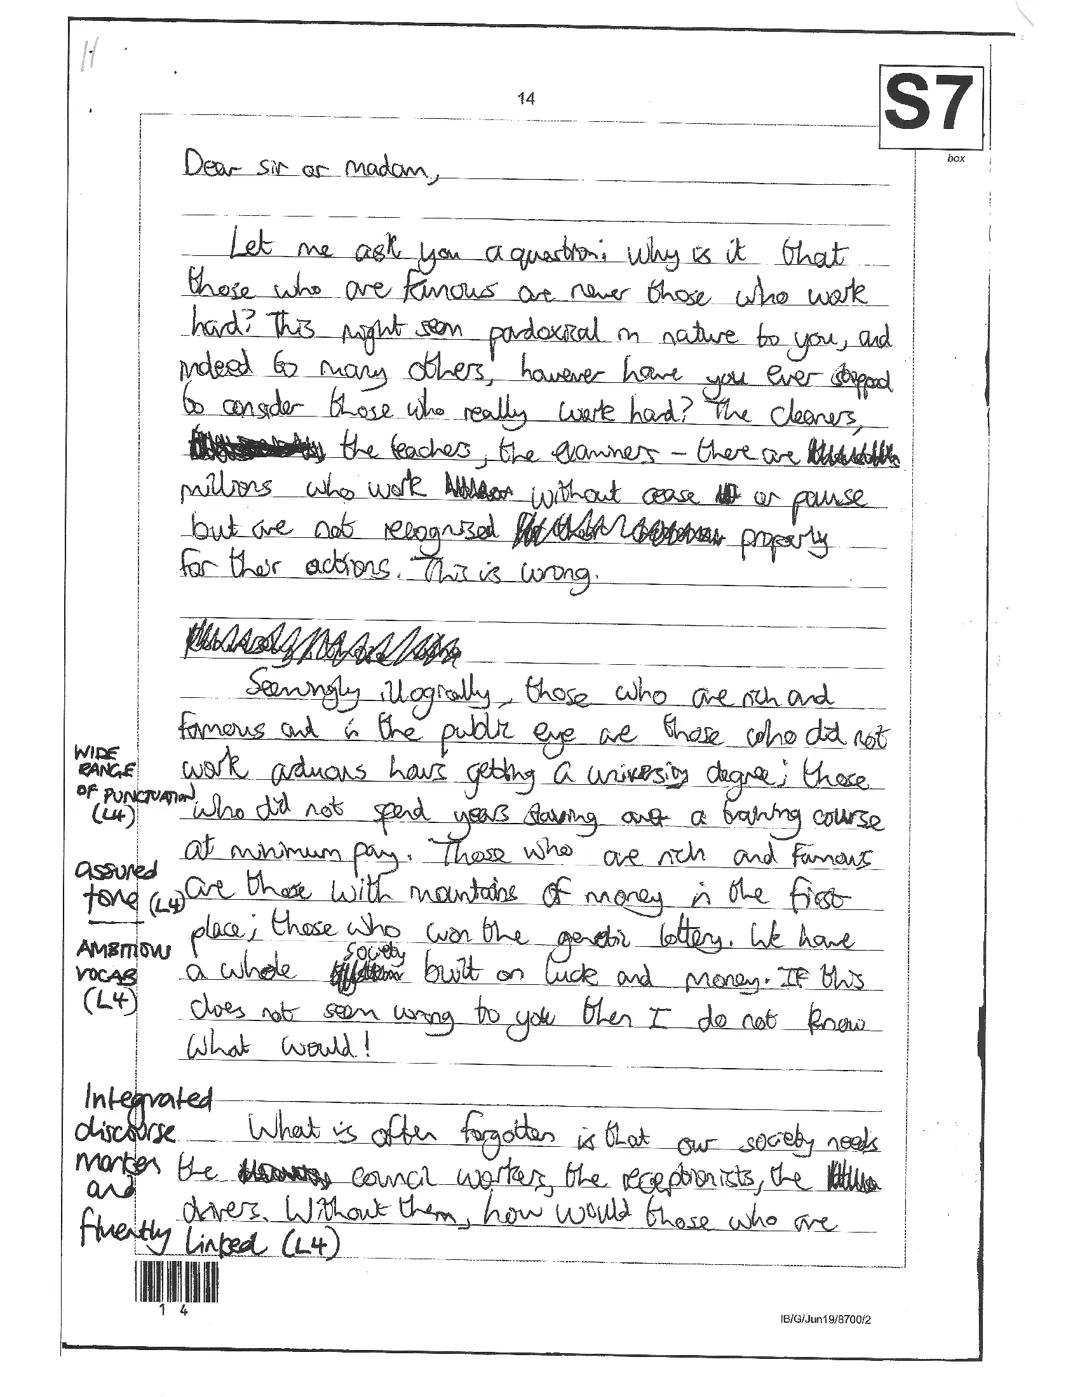 H
S7
14
box
Dear sir or madam,
Let me ask you a question; why is it that
those who are famous are never those who work
hard? This might seem pardoxical in nature to you, and
indeed to many others, however have you ever stopped
to consider those who really work hard? The cleaners,
the teachers, the examiners - there are
millions who work without cease or pause
but are not recognised properly
for their actions. This is wrong.
Seemingly illogically, those who are rich and
famous and in the public eye are those who did not
WIDE
RANGE
OF PUNCTUATION
(L4)
work arduous hours getting a university degree; those
who did not spend years slaving over a training course
at minimum pay. Those who are rich and famous
assured
tone (L4)
are those with mountains of money in the first
place; those who won the genetic lottery. We have
AMBITIOUS
VOCAB
(L4)
a whole society built on luck and money. If this
does not seem wrong to you then I do not know
what would!
Integrated
discourse
marker
and
fluently linked (L4)
What is often forgotten is that our society needs
the council workers, the receptionists, the
drivers. Without them, how would those who are
1 4
IB/G/Jun19/8700/2